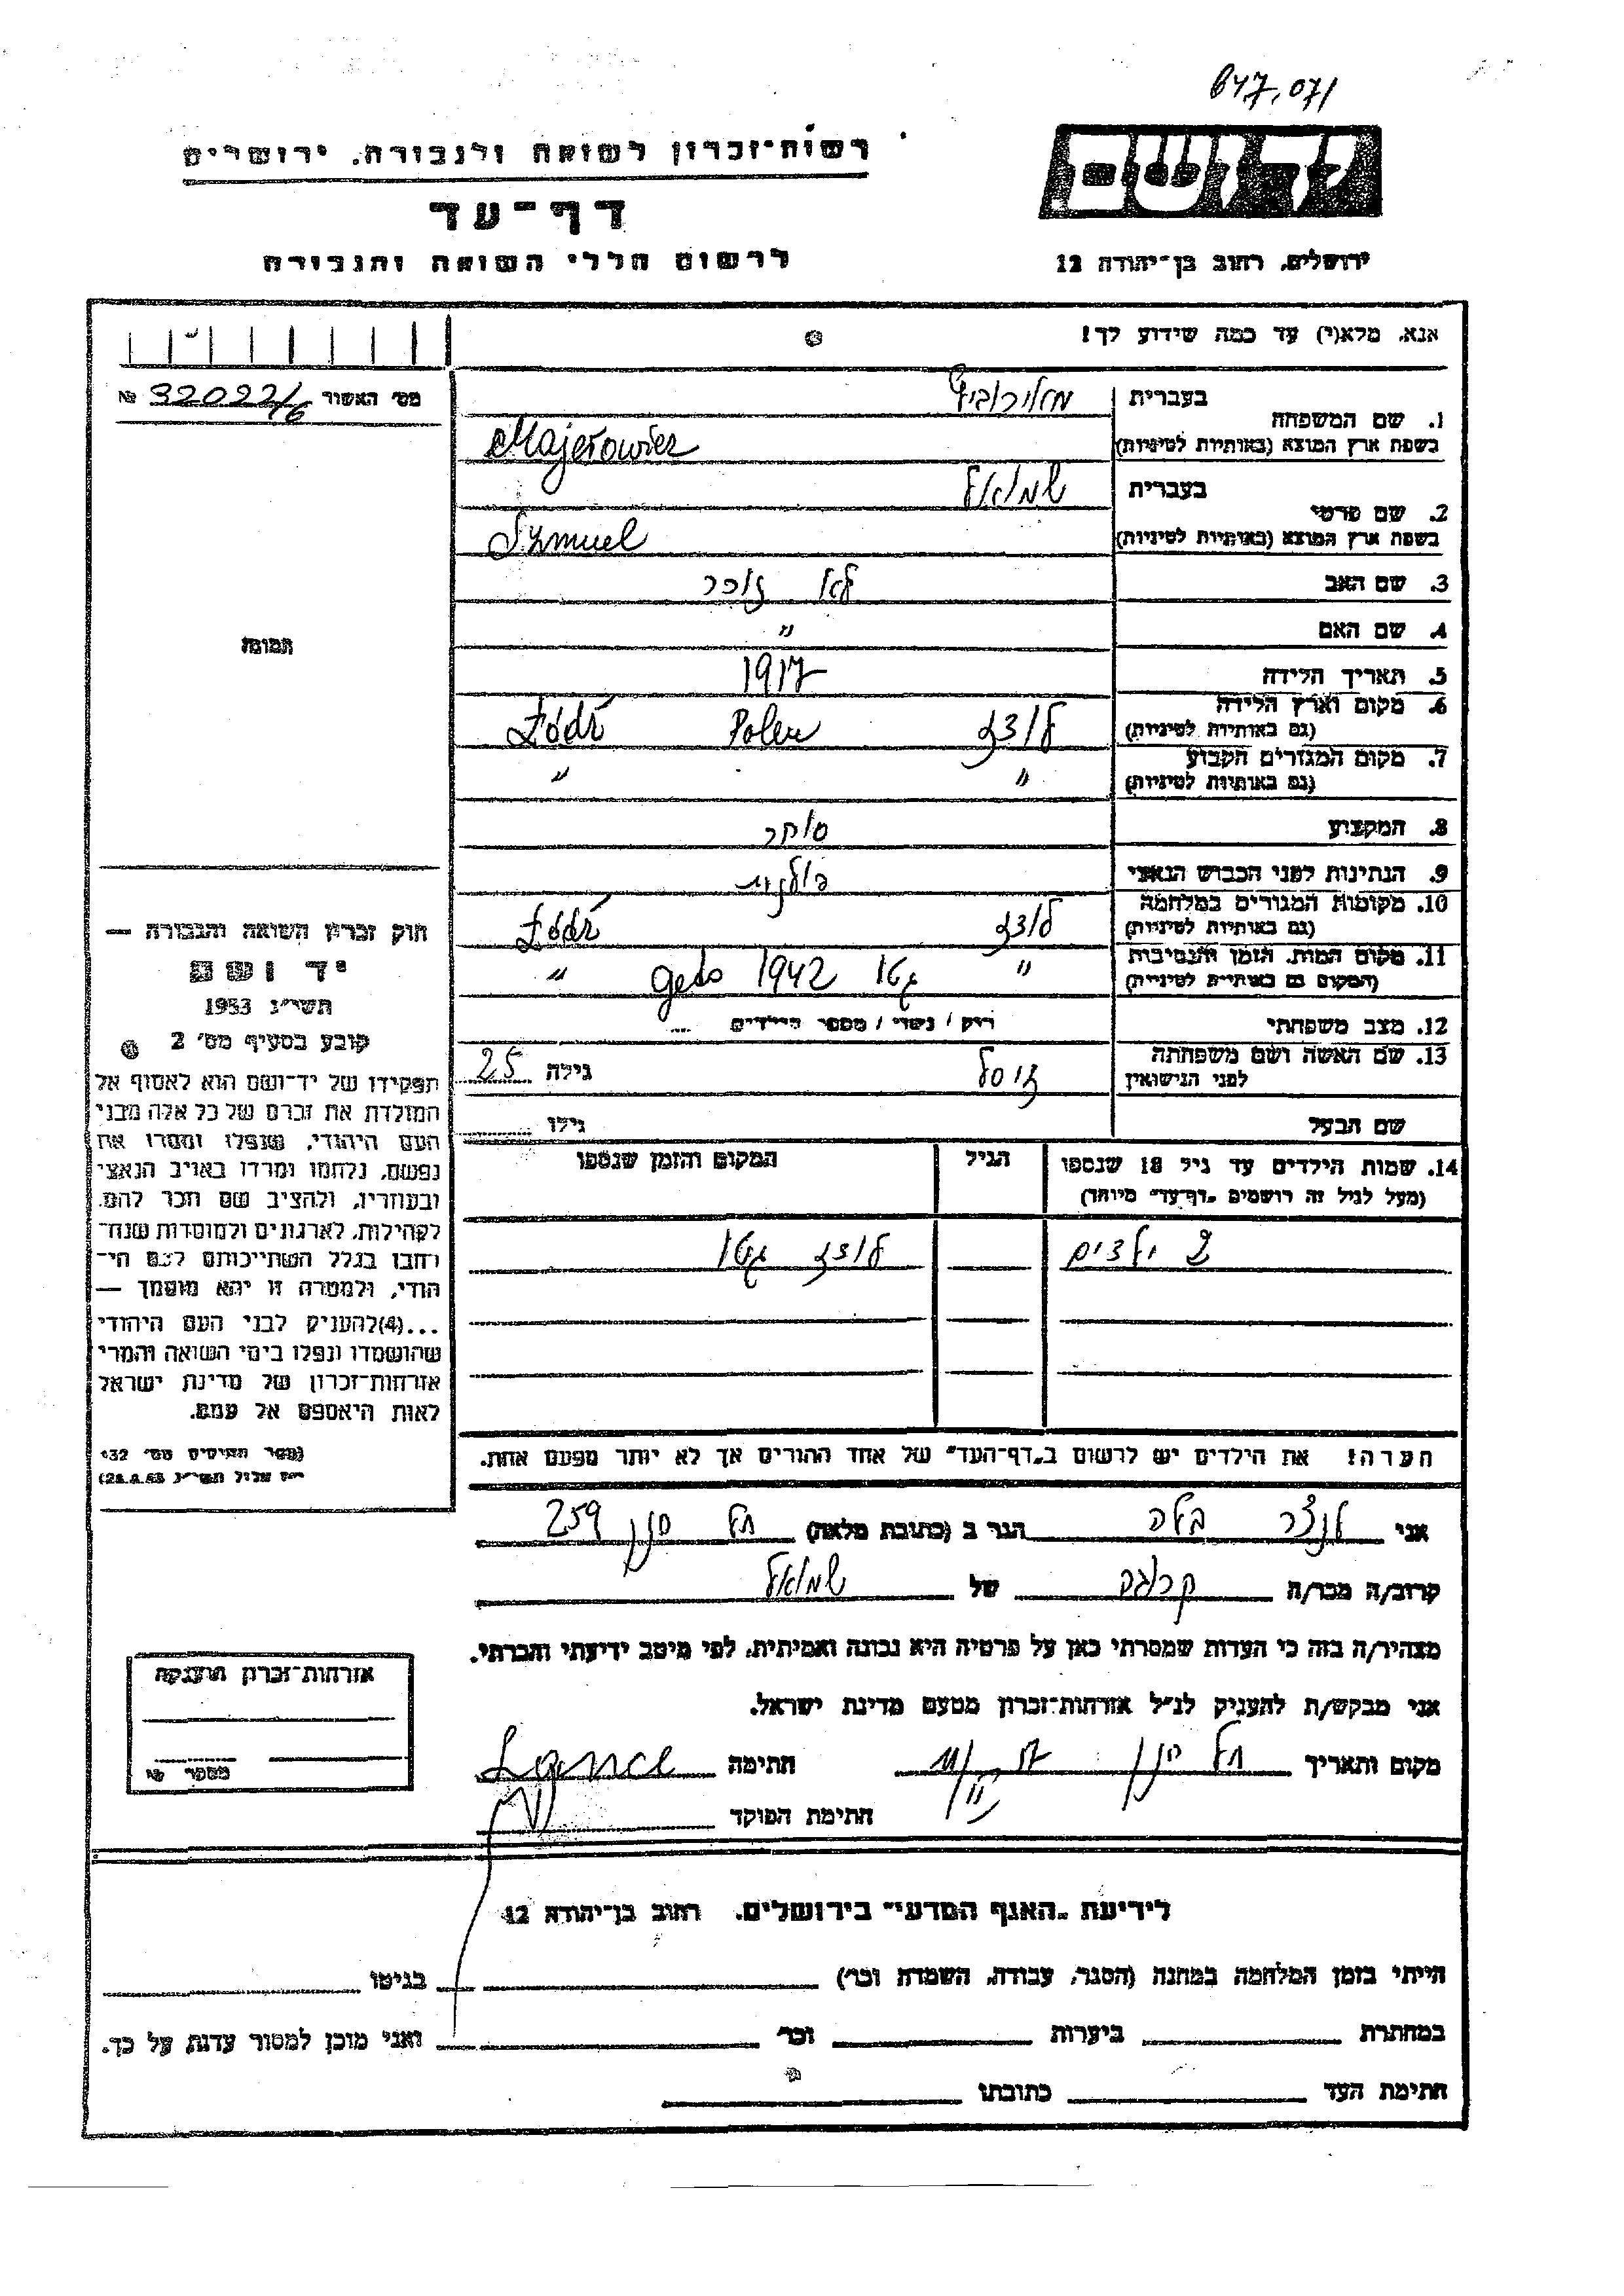 647,071
רשות-זכרון לשואה ולגבורה, ירושלים
יד ושם
דף-עד
לרשום חללי השואה והגבורה
ירושלים, רחוב בן-יהודה 12
אנא, מלא(י) עד כמה שידוע לך!
מס' האשור 32022/6 №
1. שם המשפחה
בעברית
בשפת ארץ המוצא (באותיות לטיניות)
Majerowicz
2. שם פרטי
בעברית שמואל
בשפת ארץ המוצא (באותיות לטיניות) Szmuel
3. שם האב לא זוכר
4. שם האם "
תמונה
5. תאריך הלידה 1917
6. מקום וארץ הלידה
(גם באותיות לטיניות) לודז Polen Łódź
7. מקום המגורים הקבוע
(גם באותיות לטיניות) " "
8. המקצוע סוחר
9. הנתינות לפני הכבוש הנאצי פולנית
10. מקומות המגורים במלחמה
(גם באותיות לטיניות) לודז Łódź
11. מקום המות, הזמן והנסיבות
(המקום גם באותיות לטיניות) " גטו 1942 geto "
12. מצב משפחתי רווק / נשוי / מספר הילדים ....
13. שם האשה ושם משפחתה
לפני הנישואין גילה 25
שם הבעל גילו
14. שמות הילדים עד גיל 18 שנספו
(מעל לגיל זה רושמים "דף-עד" מיוחד)
הגיל
המקום והזמן שנספו
ילדים לודז גטו
הערה! את הילדים יש לרשום ב"דף-העד" של אחד ההורים אך לא יותר מפעם אחת.
חוק זכרון השואה והגבורה —
יד ושם
תשי"ג 1953
קובע בסעיף מס' 2
תפקידו של יד-ושם הוא לאסוף אל
המולדת את זכרם של כל אלה מבני
העם היהודי, שנפלו ומסרו את
נפשם, נלחמו ומרדו באויב הנאצי
ובעוזריו, ולהציב שם וזכר להם,
לקהילות, לארגונים ולמוסדות שנח-
רבו בגלל השתייכותם לעם הי-
הודי, ולמטרה זו יהא מוסמך —
...(4)להעניק לבני העם היהודי
שהושמדו ונפלו בימי השואה והמרי
אזרחות-זכרון של מדינת ישראל
לאות היאספם אל עמם.
(ספר החוקים מס' 132
י"ז אלול תשי"ג 28.8.53)
אני בלה הגר ב (כתובת מלאה) 259
קרוב/ה מכר/ה קרובה של שמואל
מצהיר/ה בזה כי העדות שמסרתי כאן על פרטיה היא נכונה ואמיתית, לפי מיטב ידיעתי והכרתי.
אני מבקש/ת להעניק לנ"ל אזרחות-זכרון מטעם מדינת ישראל.
מקום ותאריך חתימה
חתימת הפוקד
אזרחות-זכרון הוענקה
מספר
לידיעת "האגף המדעי" בירושלים, רחוב בן-יהודה 12
הייתי בזמן המלחמה במחנה (הסגר, עבודה, השמדה וכו') בגיטו
במחתרת ביערות וכו' ואני מוכן למסור עדות על כך.
חתימת העד כתובתו